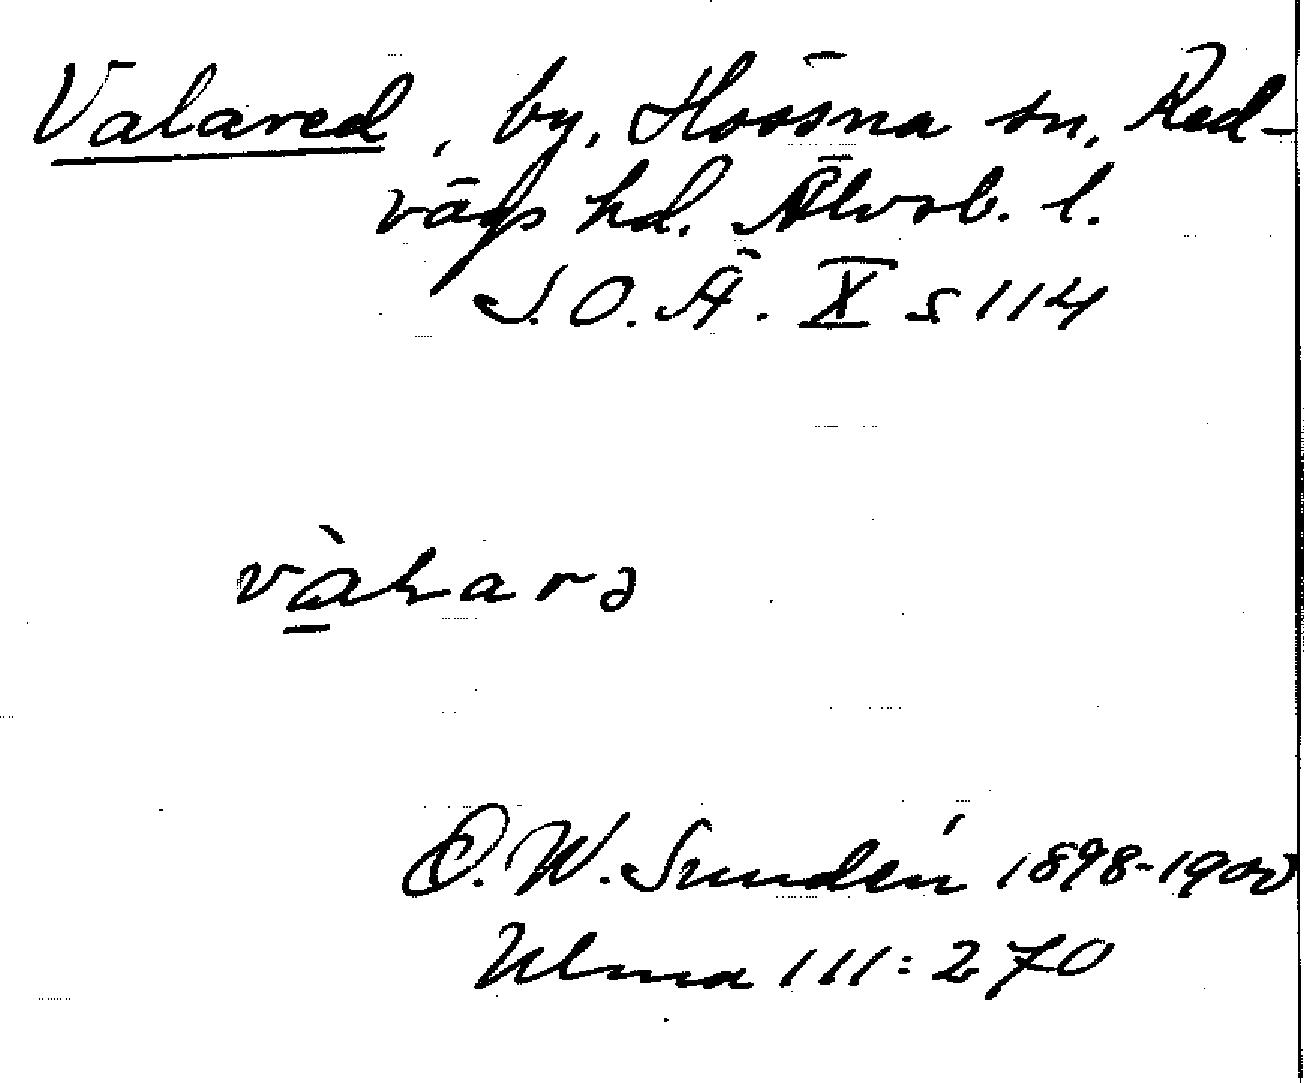 Valared, by, Hössna sn, Red-
vägs hd. Älvsb. l.
S.O.Ä. X s 114
vàlarə
D. W. Sundén 1898-1900
Ulma 111:270